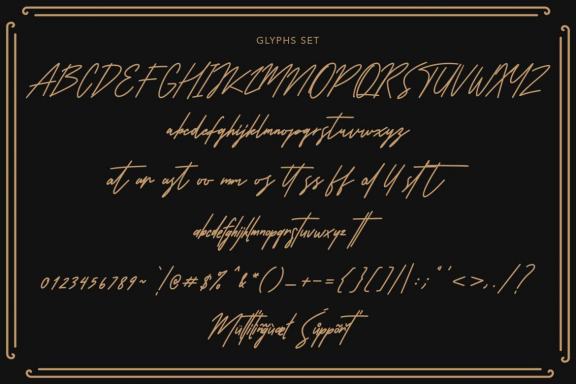 GLYPHS SET
ABCDEFGHIJKLMNOPQRSTUVWXYZ
abcdefghijklmnopqrstuvwxyz
at an ast oo mm os tt ss ff al ll stt
abcdefghijklmnopqrstuvwxyz tt
0123456789~ `!@#$%^&*()_+-={}[]\/|:;"'<>,./?
Multilingual Support